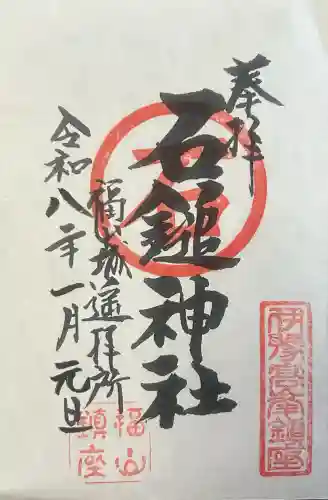 奉拝
石鎚神社
福山城遥拝所
令和八年一月元旦
伊勢宮奉鎮座
福山
鎮座